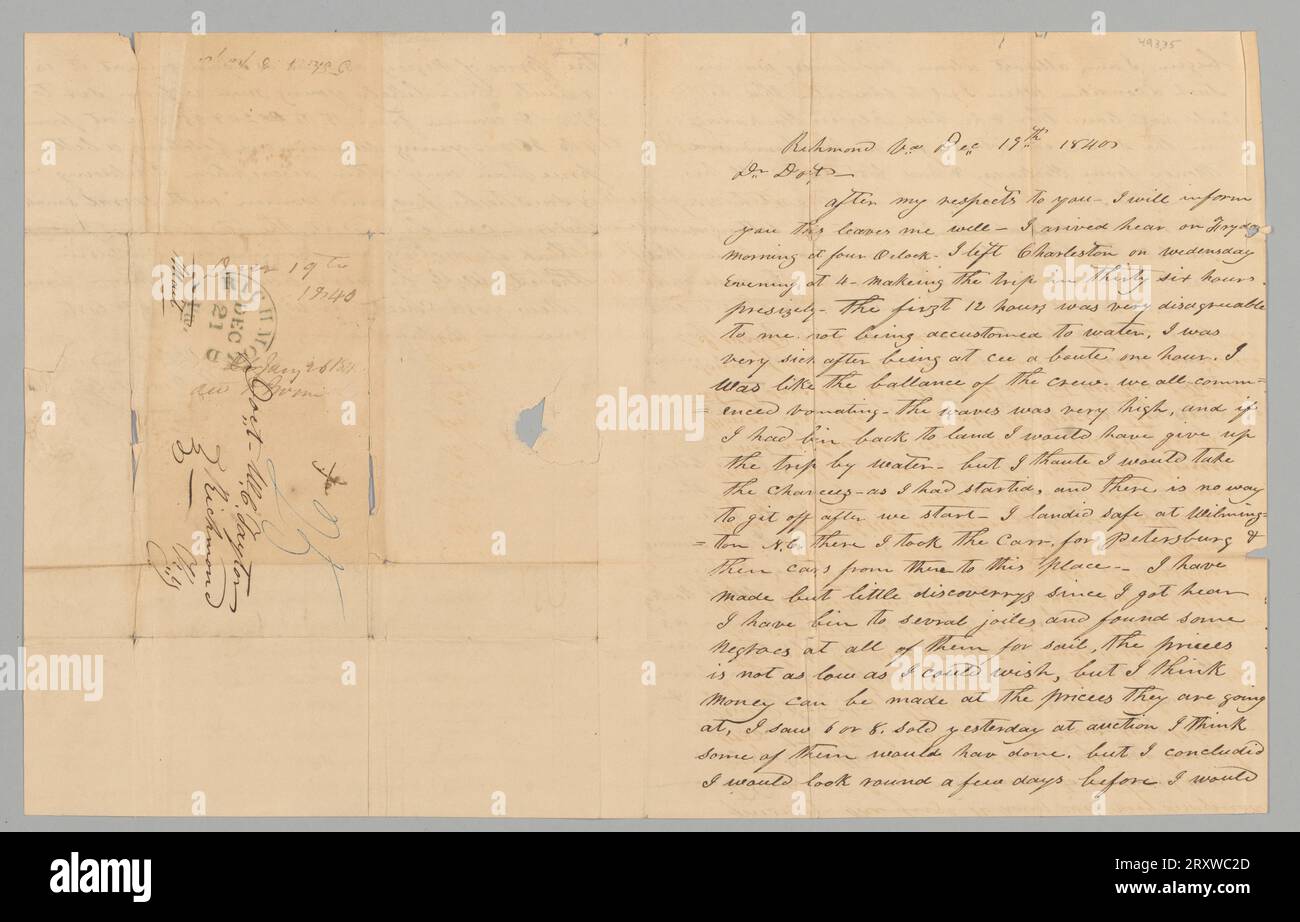 49335
Richmond Va Dec 19th 1840
Dr Doct—
after my respects to you— I will inform
you this leaves me well— I arived hear on Fryday
morning at four Oclock— I left Charleston on wedensday
Evening at 4— makeing the trip in thirty six hours
presizely— the first 12 hours was very disagreuable
to me. not being accustomed to water, I was
very sick after being at cee a boute one hour. I
was like the ballance of the crew— we all comm=
=enced vomating— the waves was very high, and if
I had bin back to land I would have give up
the trip by water— but I thaute I would take
the chances— as I had startid, and there is no way
to git off after we start— I landid safe at Wilming=
=ton N.C. there I took the Carr. for Petersburg &
then cars from there to this place— I have
made but little discoverry since I got hear
I have bin to sevral jailes and found some
Negroes at all of them for sail, the prices
is not as low as I could wish, but I think
money can be made at the pricees they are going
at, I saw 6 or 8. sold yesterday at auction I think
some of them would hav done. but I concluded
I would look round a few days before I would
19th
1840
RICHMOND
DEC
21
Jany 26
Doct—
Dayton
Richmond
City
alamy
alamy
Image ID: 2RXWC2D
www.alamy.com